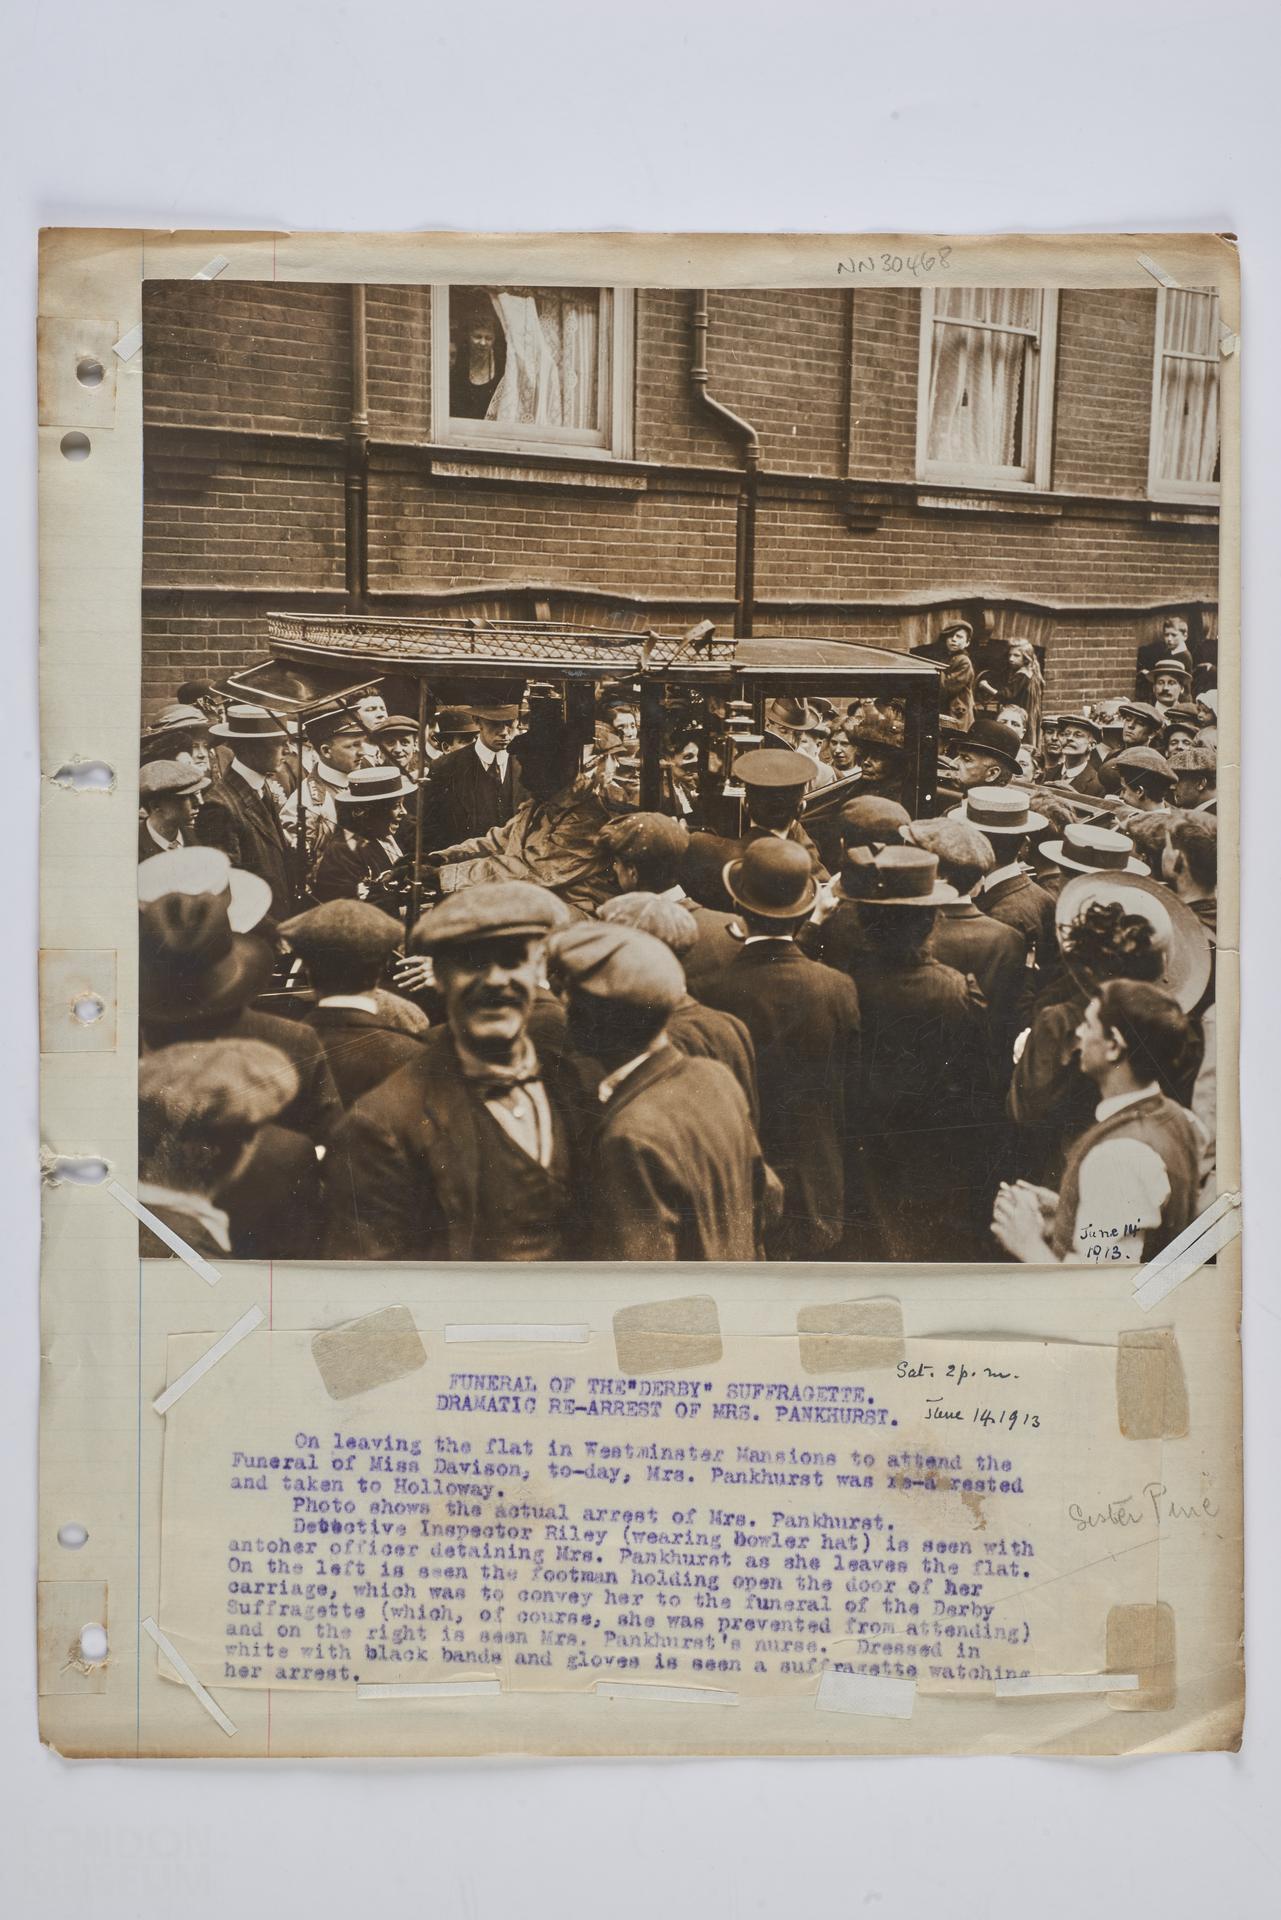 NN30468
June 14
1913.
Sat. 2 p.m.
FUNERAL OF THE"DERBY" SUFFRAGETTE.
DRAMATIC RE-ARREST OF MRS. PANKHURST.
June 14 1913
On leaving the flat in Westminster Mansions to attend the
Funeral of Miss Davison, to-day, Mrs. Pankhurst was re-arrested
and taken to Holloway.
Photo shows the actual arrest of Mrs. Pankhurst.
Detective Inspector Riley (wearing bowler hat) is seen with
antoher officer detaining Mrs. Pankhurst as she leaves the flat.
On the left is seen the footman holding open the door of her
carriage, which was to convey her to the funeral of the Derby
Suffragette (which, of course, she was prevented from attending)
and on the right is seen Mrs. Pankhurst's nurse. Dressed in
white with black bands and gloves is seen a suffragette watching
her arrest.
Sister Pine
LONDON
MUSEUM